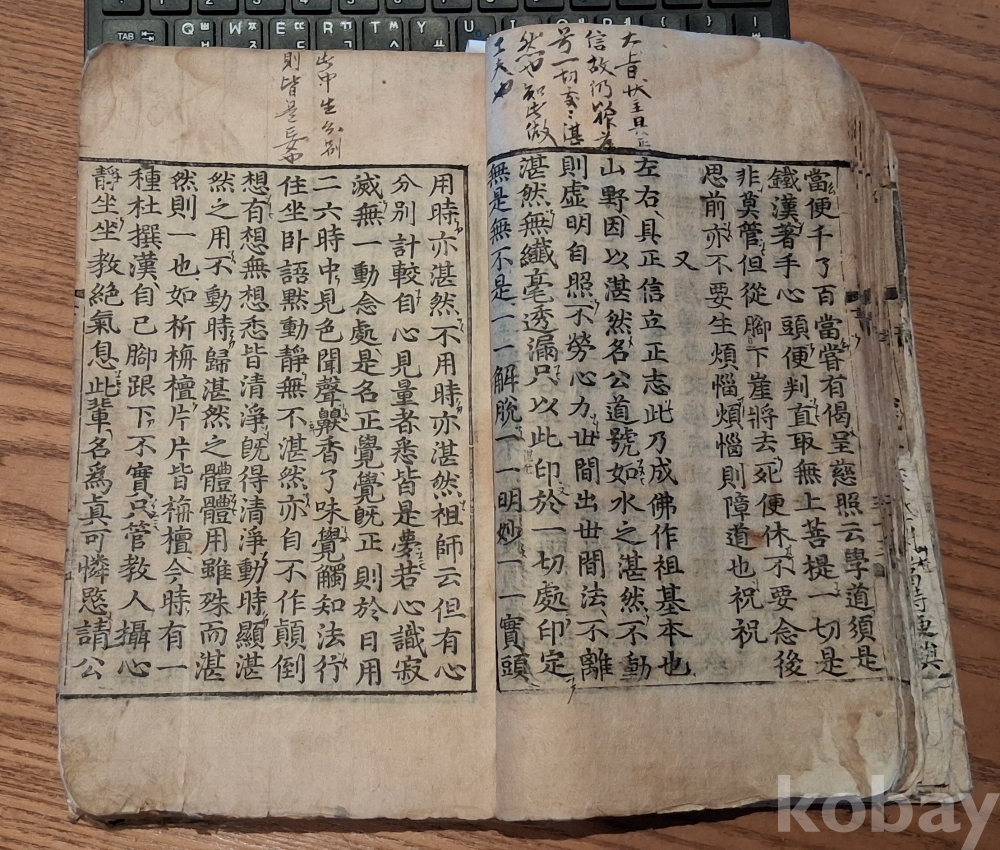 信故仍
号一切
工夫也
當便千了百當嘗有偈呈慈照云學道須是
鐵漢著手心頭便判直取無上菩提一切是
非莫管但從腳下崖將去死便休不要念後
思前亦不要生煩惱煩惱則障道也祝祝
又
左右具正信立正志此乃成佛作祖基本也
山野因以湛然名公道號如水之湛然不動
則虛明自照不勞心力世間出世間法不離
湛然無纖毫透漏只以此印於一切處印定
無是無不是一一解脫一一明妙一一實頭
此中生分別
則皆是妄
用時亦湛然不用時亦湛然祖師云但有心
分別計較自心見量者悉皆是夢若心識寂
滅無一動念處是名正覺覺旣正則於日用
二六時中見色聞聲齅香了味覺觸知法行
住坐卧語默動靜無不湛然亦自不作顚倒
想有想無想悉皆清淨旣得清淨動時顯湛
然之用不動時歸湛然之體體用雖殊而湛
然則一也如析栴檀片片皆栴檀今時有一
種杜撰漢自己腳跟下不實只管教人攝心
靜坐坐教絶氣息此輩名爲眞可憐愍請公
TAB Q W E R T Y
kobay